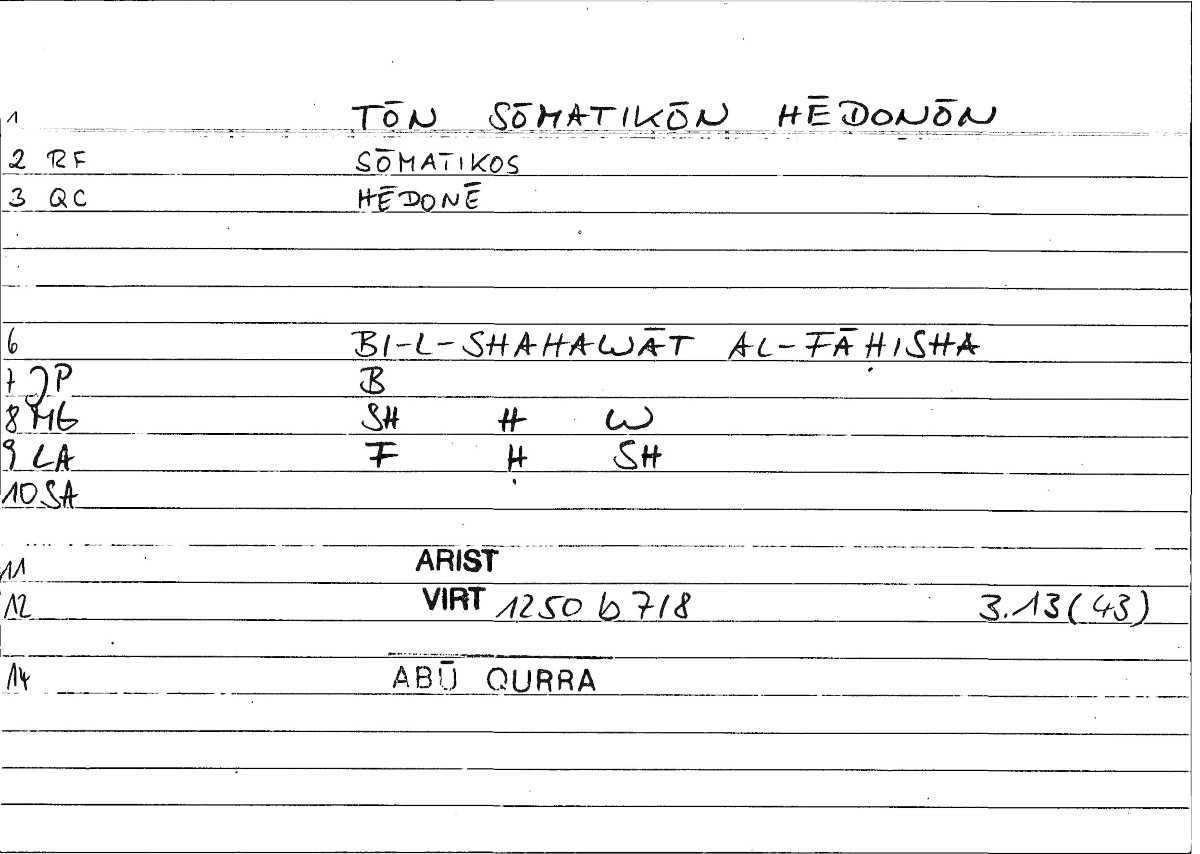 1 TŌN SŌMATIKŌN HĒDONŌN
2 RF SŌMATIKOS
3 QC HĒDONĒ
6 BI-L-SHAHAWĀT AL-FĀḤISHA
7 JP B
8 MG SH H W
9 LA F Ḥ SH
10 SA
11 ARIST
12 VIRT 1250 b 7/8 3.13(43)
14 ABŪ QURRA